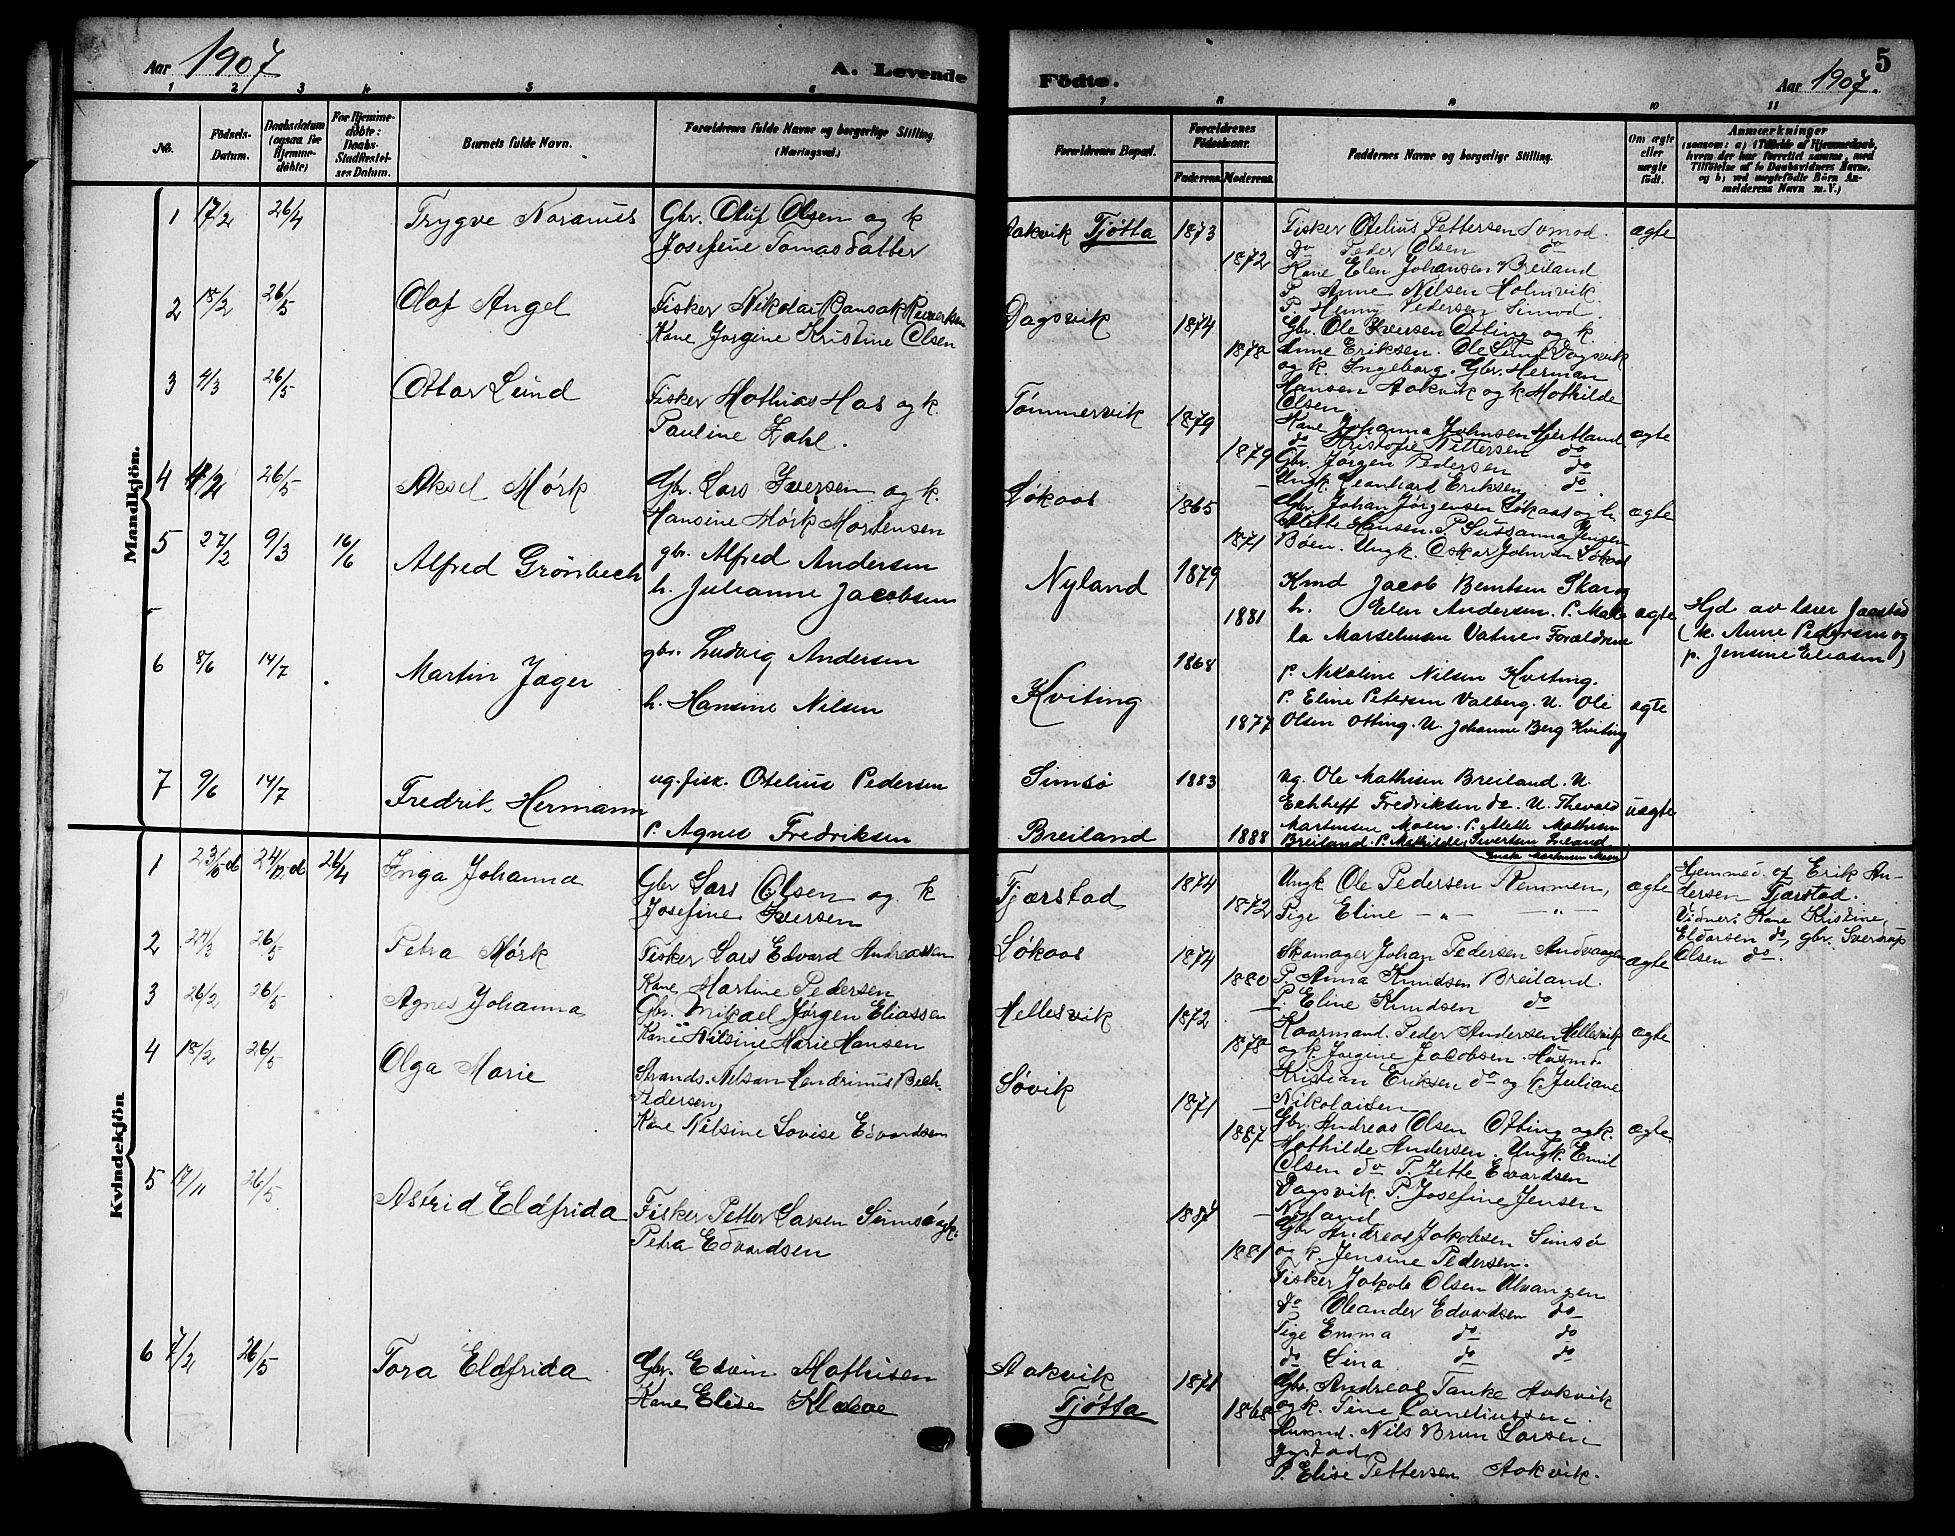 Aar 1907
A. Levende
Födte.
5
Aar 1907.
1 2 3 4 5 6 7 8 9 10 11
No.
Födsels-
Datum.
Daabsdatum
(ogsaa for
Hjemme-
döbte)
For Hjemme-
döbte:
Daabs-
Stadfæstel-
ses Datum.
Barnets fulde Navn.
Forældrenes fulde Navne og borgerlige Stilling.
(Næringsvei.)
Forældrenes Bopæl.
Forældrenes
Födselsaar.
Faderens. Moderens.
Faddernes Navne og borgerlige Stilling.
Om ægte
eller
uægte
födt.
Anmærkninger
(saasom: a) i Tilfælde af Hjemmedaab,
hvem der har forrettet samme, med
Tilföielse af to Daabsvidners Navne,
og b) ved uægtefödte Börn An-
melderens Navn m. V.)
Mandkjön.
1 17/2 26/4 Trygve Noranus
Gbr. Oluf Olsen og k
Josefine Tomasdatter
Aakvik Tjøtta 1873 1872
Fisker Otelius Pettersen Somod.
do Peder Olsen do
Kone Elen Johansen Breiland
P. Anne Nilsen Holmvik.
P. Henny Pedersen Simod.
ægte
2 18/2 26/5 Olaf Angel
Fisker Nikolai Bansak
Kone Jorgine Kristine Olsen
Dagsvik 1874 1878
Gbr. Ole Iversen Otting og k.
Anne Eriksen. Ole Lund Dagsvik
og k. Ingeborg. Gbr. Herman
Hansen Aakvik og k Mathilde
Olsen.
3 4/3 26/5 Ottar Lund
Fisker Mathias Has og k.
Pauline Zahl.
Tömmervik 1879 1879
Kone Johanna Johnsen Hjertland
do Kristofie Pettersen do
Gbr. Jörgen Pedersen do
Ungk. Leonhard Eriksen do
ægte
4 26/5 Aksel Mörk
Gbr. Lars Iversen og k.
Hansine Mörk Mortensen
Lökaas 1865 1871
Gbr. Johan Jörgensen Lökaas og h.
Mette Hansen. P. Sussanna Jensen
Böen. Ungk. Oskar Johnsen Lökaas
ægte
5 27/2 9/3 16/6 Alfred Grönbech
gbr. Alfred Andersen
h. Julianne Jacobsen
Nyland 1879 1881
Kmd Jacob Berntsen Skarg
h. Elen Andersen. P. Mat-
la Marselinsen Vatne. Forældrene
ægte
Hjd av lærer Jaastad
(k. Anne Pedersen og
p. Jensine Eliasen)
6 8/6 14/7 Martin Jager
gbr. Ludvig Andersen
h. Hansine Nilsen
Kviting 1868 1877
p. Nikoline Nilsen Kviting.
p. Eline Petersen Valberg. U. Ole
Olsen Otting. U. Johanne Berg Kviting
ægte
7 9/6 14/7 Fredrik Hermann
ug. fisk. Otelius Pedersen
p. Agnes Fredriksen
Simsö 1883
Breiland 1888
Ug. Ole Mathisen Breiland. U.
Fredriksen do. U. Thevald
Martinsen Moen. P. Mette Mathisen
Breiland. P. Mathilde Sivertsen
uægte
Kvindekjön
1 26/4 Inga Johanna
Gbr Lars Olsen og k
Josefine Iversen
Tjærstad 1874 1872
Ungk Ole Pedersen Remmen,
Pige Eline — „ — — „ —
ægte
Hjemmed. of Erik An-
dersen Tjærstad.
Vidner: Kone Kristine
Eldarsen do, gbr. Sverdrup
Olsen do.
2 24/3 26/5 Petra Mörk
Fisker Lars Edvard Andreassen
Kone Martine Pedersen
Lökaas 1874 1880
Skomager Johan Pedersen Andvaagen
P. Anna Knudsen Breiland
P. Eline Knudsen do
ægte
3 26/2 26/5 Agnes Johanna
Gbr. Mikael Jörgen Eliassen
Kone Nilsine Marie Hansen
Hellesvik 1872 1878
Kaarmand. Peder Andersen Hellesvik
og k. Jorgine Jacobsen. Husmd.
Kristian Eriksen do og k. Juliane
Nikolaisen
ægte
4 18/2 26/5 Olga Marie
Strands. Nelsan Hendrinus Bech-
Pedersen
Kone Nilsine Lovise Edvardsen
Sövik 1871 1887
Gbr. Andreas Olsen Otting og k.
Mathilde Andersen. Ungk. Emil
Olsen do P. Jette Edvardsen
Dagsvik. P. Josefine Jensen
Nyland
ægte.
5 17/11 26/5 Astrid Eldfrida
Fisker Petter Larsen Simsö og k.
Petra Edvardsen
1887 1881
Gbr Andreas Jakobsen Simsö
og k. Jensine Pedersen.
Fisker Jakob Olsen Ulvangen
do Oleander Edvardsen do
Pige Emma do do
do Lina do do
6 7/2 26/5 Tora Eldfrida
Gbr. Edvin Mathisen
Kone Elise Kldeve
Aakvik
Tjøtta 1871 1868
Gbr. Andreas Tanke Aakvik
og k. Tine Corneliussen.
Husmd. Nils Brun Larsen
P. Elise Pettersen Aakvik.